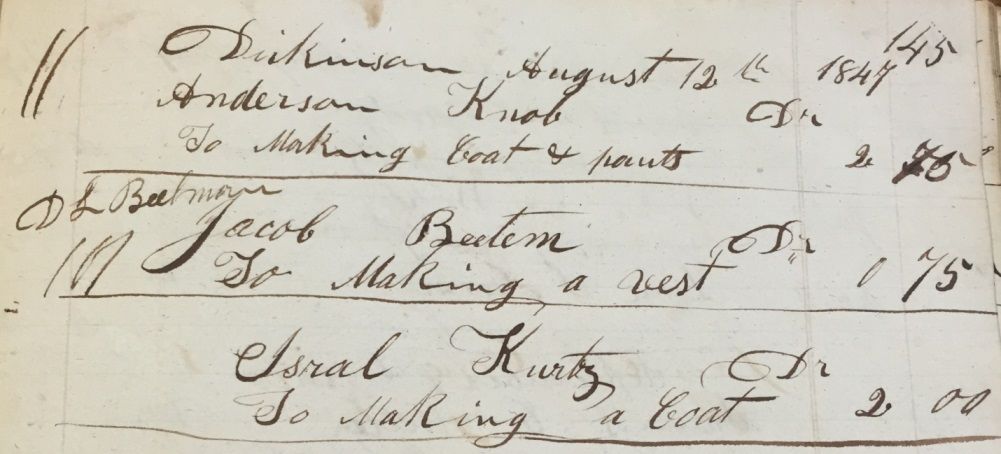 145
Dickinson August 12th 1847
11 Anderson Knob Dr
To Making Coat & pants 2 75
D L Beetman
Jacob Beetem Dr
101 To Making a vest 0 75
Isral Kurtz Dr
To Making a Coat 2 00